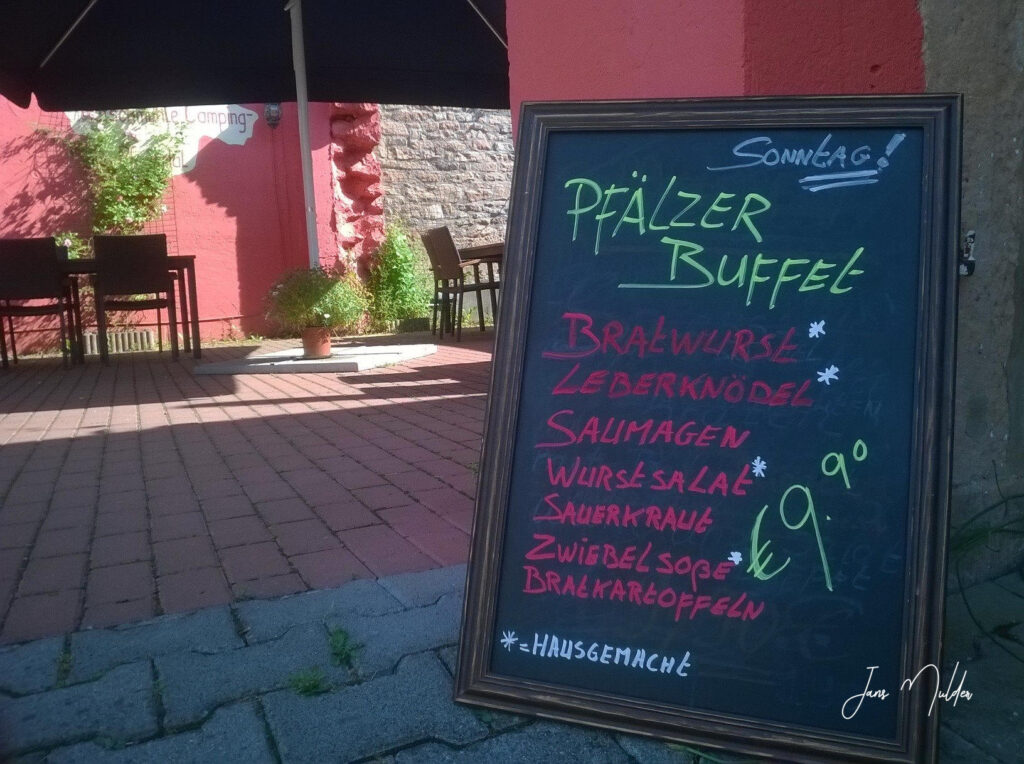 Camping-
SONNTAG!
PFÄLZER
BUFFET
BRATWURST*
LEBERKNÖDEL*
SAUMAGEN
WURSTSALAT*
SAUERKRAUT
ZWIEBELSOßE*
BRATKARTOFFELN
€ 9.90
*=HAUSGEMACHT
Jans Mulder